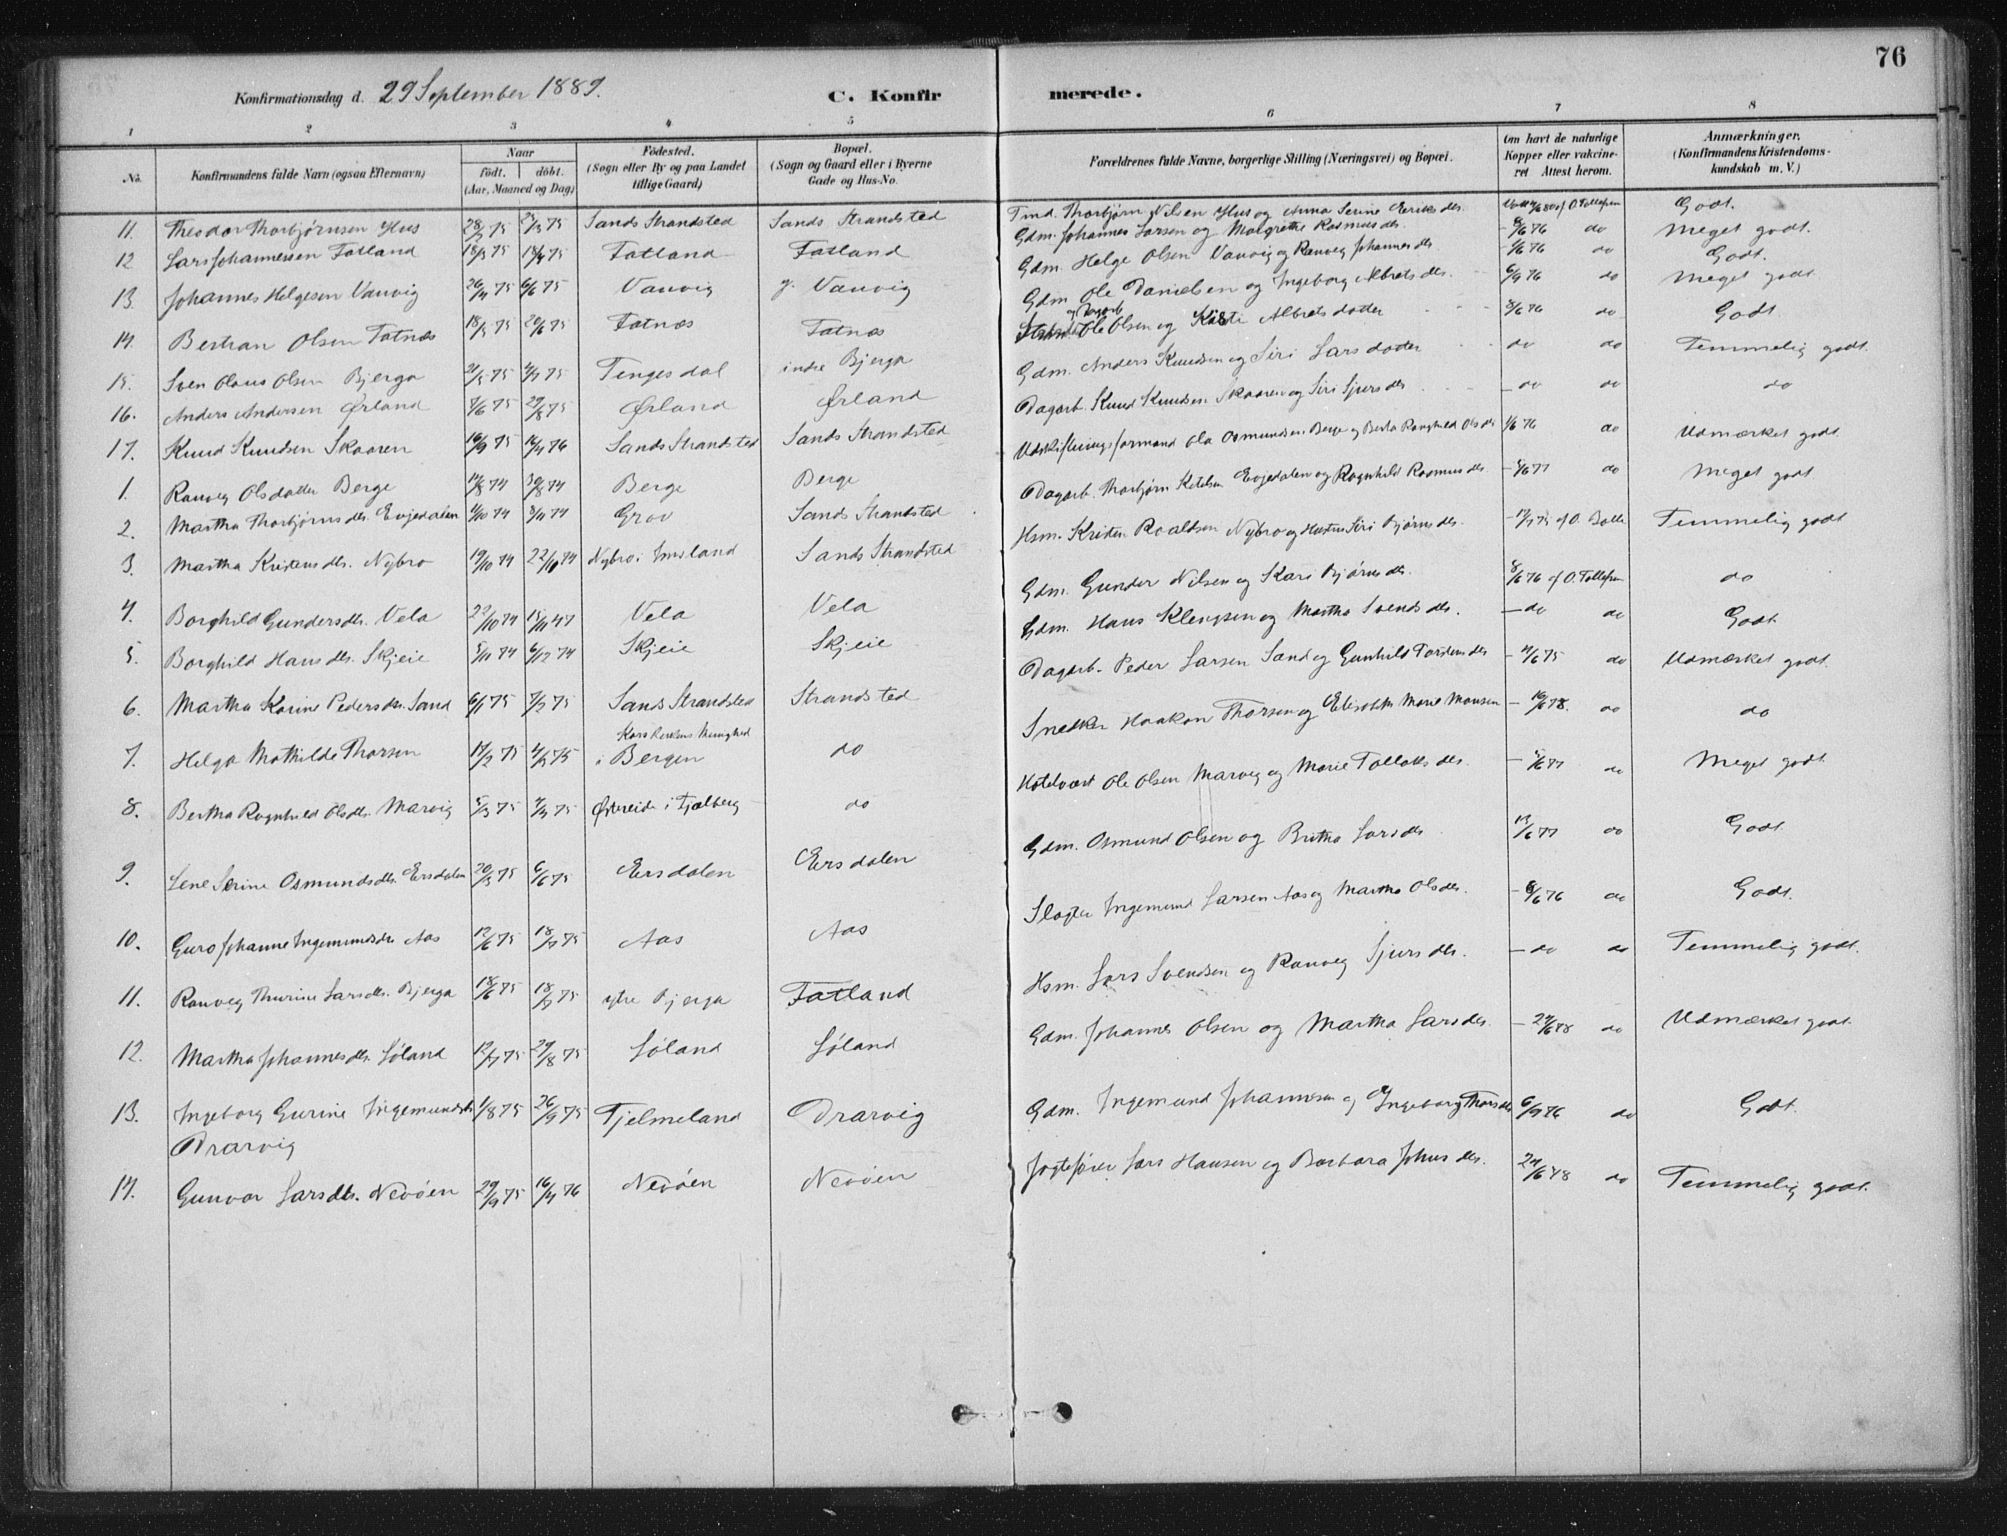 76
Konfirmationsdag d. 29 September 1889. C. Konfirmerede.
1 2 3 4 5 6 7 8
No. Konfirmandens fulde Navn (ogsaa Efternavn) Naar født. døbt. (Aar, Maaned og Dag) Fødested. (Sogn eller By og paa Landet tillige Gaard) Bopæl. (Sogn og Gaard eller i Byerne Gade og Hus-No. Forældrenes fulde Navne, borgerlige Stilling (Næringsvei) og Bopæl. Om havt de naturlige Kopper eller vakcineret Attest herom. Anmærkninger. (Konfirmandens Kristendomskundskab m. V.)
11. Theodor Thorbjørnsen Hus 28/2 75 Sands Strandsted Sands Strandsted Thorbjørn Nilsen Hus og Anna Serine Eriksdr. Godt.
12 Lars Johannessen Fatland 18/3 75 18/4 75 Fatland Fatland Gdm. Johannes Larsen og Malgrethe Rasmusdr. 8/6 76 do Meget godt.
13. Johannes Helgesen Vanvig 26/4 75 6/6 75 Vanvig g. Vanvig Gdm. Helge Olsen Vanvig og Ranveg Johannesdr. 8/6 76 do Godt.
14. Bertran Olsen Fatnæs 18/5 75 20/6 75 Fatnæs Fatnæs Gdm. Ole Danielsen og Ingeborg Albretsdr. 6/9 76 do Meget godt
15. Sven Olaus Olsen Bjerga 21/5 75 4/7 75 Tengesdal indre Bjerga Ole Olsen og Albretsdotter 8/6 76 do Godt
16. Anders Andersen Ørland 7/6 75 29/8 75 Ørland Ørland Gdm. Anders Knudsen og Siri Larsdotter do do Temmelig godt
17. Knud Knudsen Skaaren 16/9 75 16/4 76 Sands Strandsted Sands Strandsted Dagarb. Knud Knudsen Skaaren og Siri Sjursdr. - do do do
1. Ranveg Olsdatter Berge 14/8 74 30/8 74 Berge Berge Udskiftningsformand Ola Osmundsen Berge og Berta Ragnhild Olsdr 1/6 76 do Udmærket godt
2. Martha Thorbjørnsdr. Evjedalen 4/10 74 8/11 74 Grov Sands Strandsted Dagarb. Thorbjørn Ketelsen Evjedalen og Ragnhild Rasmusdr. - 8/6 77 do Meget godt
3. Martha Kristensdr. Nybro 19/10 74 22/10 74 Nybro i Imsland Sands Strandsted Hsm. Kristen Roaldsen Nybro og Hustru Siri Bjørnsdr. Temmelig godt
4. Borghild Gundersdr. Vela 22/10 74 15/11 47 Vela Vela Gdm. Gunder Nilsen og Kari Bjørnsdr. 8/6 76 af O. Tollefsen do
5. Borghild Hansdr. Skjeie 5/11 74 6/12 74 Skjeie Skjeie Gdm. Hans Klengsen og Martha Svendsdr. - do do Godt
6. Martha Karine Pedersdr. Sand 6/1 75 7/2 75 Sands Strandsted Strandsted Dagarb. Peder Larsen Sand og Gunhild Torstensdr - 4/6 75 do Udmærket godt.
7. Helga Mathilde Thorsen 14/2 75 4/4 75 Kors Kirkens Menighed i Bergen do Snedker Haakon Thorsen og Elisabeth Marie Monsen - 16/6 78. do do
8. Bertha Ragnhild Olsdr. Marvig 5/3 75 4/4 75 Østreide i Fjælberg do Hotelvært Ole Olsen Marvig og Marie Tollaksdr. - 8/6 77 do Meget godt
9. Lene Serine Osmundsdr. Eersdalen 20/3 75 6/6 75 Eersdalen Eersdalen Gdm. Osmund Olsen og Britha Larsdr 12/6 77 do Godt
10. Guro Johanne Ingemundsdr Aas 12/6 75 18/7 75 Aas Aas Slagter Ingemund Larsen Aas og Martha Olsdr. - 8/6 76 do Godt.
11. Ranveg Thurine Larsdr. Bjerga 18/6 75 18/7 75 ytre Bjerga Fatland Hsm. Lars Svendsen og Ranveg Sjursdr. - do do Temmelig godt.
12. Martha Johannesdr. Løland 12/7 75 29/8 75 Løland Løland Gdm. Johannes Olsen og Martha Larsdr. - 24/6 78 do Udmærket godt.
13. Ingeborg Gurine Ingemundsdr 1/8 75 26/9 75 Fjelmeland Drarvig Gdm. Ingemund Johannesen og Ingeborg Thorsdr 6/9 76 do Godt.
Drarvig
14. Gunvor Larsdtr. Nevøen 29/9 75 16/4 76 Nevøen Nevøen Jagtefører Lars Hansen og Barbara Johnsdr. 24/6 78 do Temmelig godt.